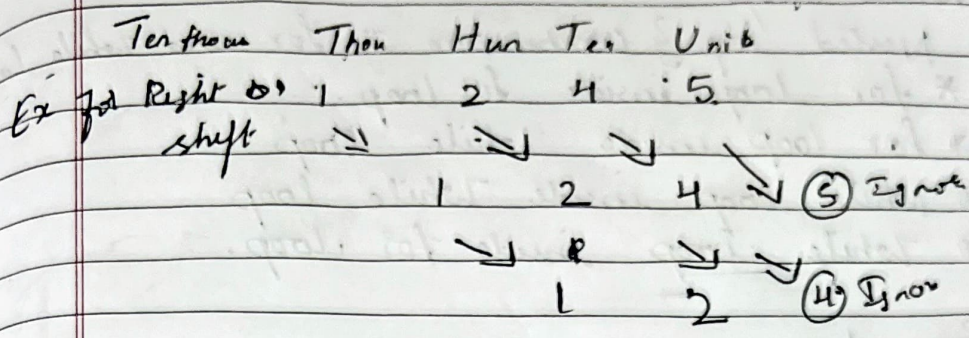 Ten thous Thou Hun Ten Unit
Ex for Right 1 2 4 5.
shift
1 2 4 5 Ignore
1 2 4 Ignor